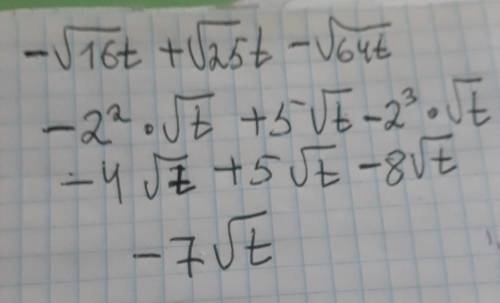 -√16t +√25t -√64t
-2² · √t +5√t -2³ · √t
-4√t +5√t -8√t
-7√t